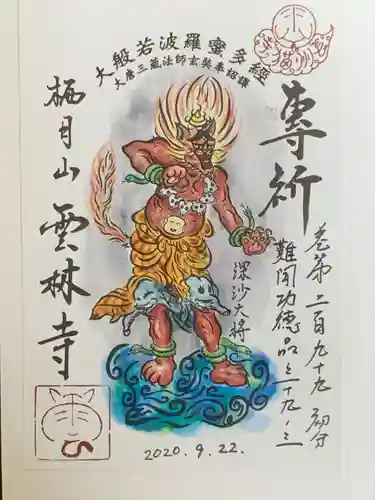 大般若波羅蜜多經
大唐三藏法師玄奘奉詔譯
專祈
卷第二百九十九 初分
難聞功德品之
深沙大将
栖月山 雲林寺
2020.9.22.